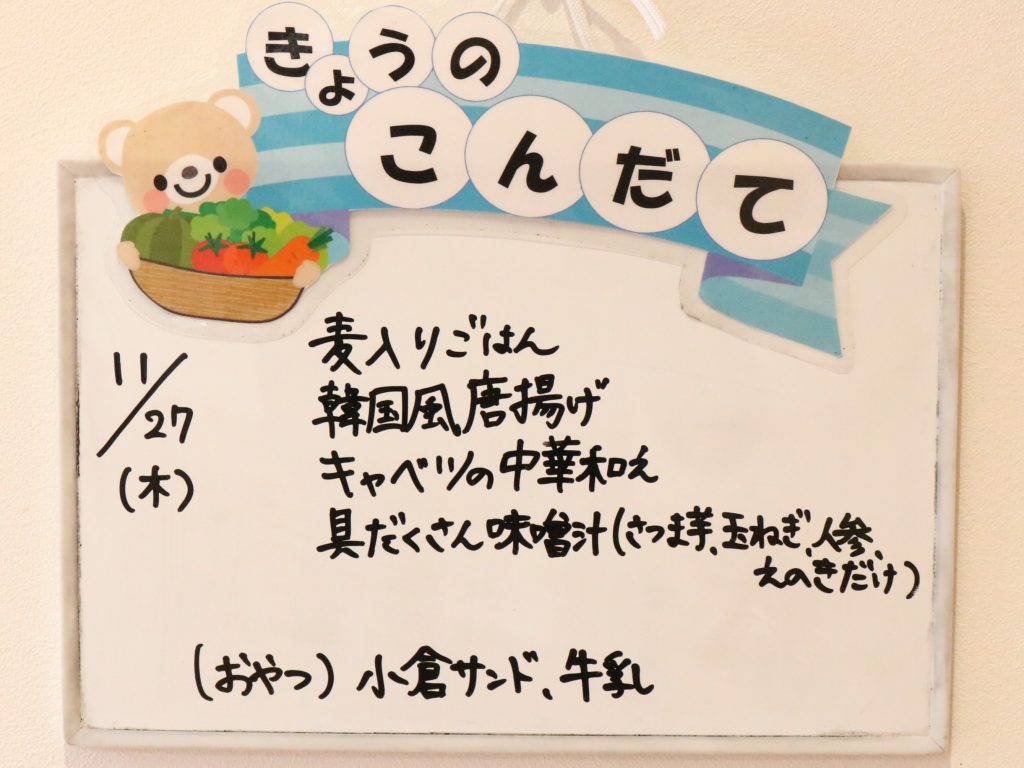 きょうの
こんだて
11/27
(木)
麦入りごはん
韓国風唐揚げ
キャベツの中華和え
具だくさん味噌汁(さつま芋、玉ねぎ、人参、
えのきだけ)
(おやつ) 小倉サンド、牛乳